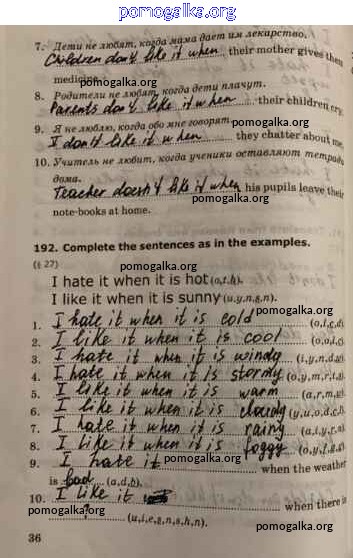 pomogalka.org
7. Дети не любят, когда мама дает им лекарство.
Children don't like it when their mother gives them
medicine. pomogalka.org
8. Родители не любят, когда дети плачут.
Parents don't like it when their children cry.
pomogalka.org
9. Я не люблю, когда обо мне говорят.
I don't like it when they chatter about me.
pomogalka.org
10. Учитель не любит, когда ученики оставляют тетради
дома.
Teacher doesn't like it when his pupils leave their
note-books at home. pomogalka.org
192. Complete the sentences as in the examples.
(§ 27) pomogalka.org
I hate it when it is hot (o,t,h).
I like it when it is sunny (u,y,n,s,n).
pomogalka.org
1. I hate it when it is cold (o,l,c,d)
2. I like it when it is cool (o,o,l,c)
3. I hate it when it is windy (i,y,n,d,w)
4. I hate it when it is stormy (o,y,m,r,t,s)
5. I like it when it is warm (a,r,m,w)
6. I like it when it is cloudy (y,u,o,d,c,l)
7. I hate it when it is rainy (a,i,y,r,n)
8. I like it when it is foggy (o,y,f,g,g)
9. I hate it when the weather
is bad (a,d,b).
10. I like it when there is
(u,i,e,g,n,s,h,n).
36
pomogalka.org